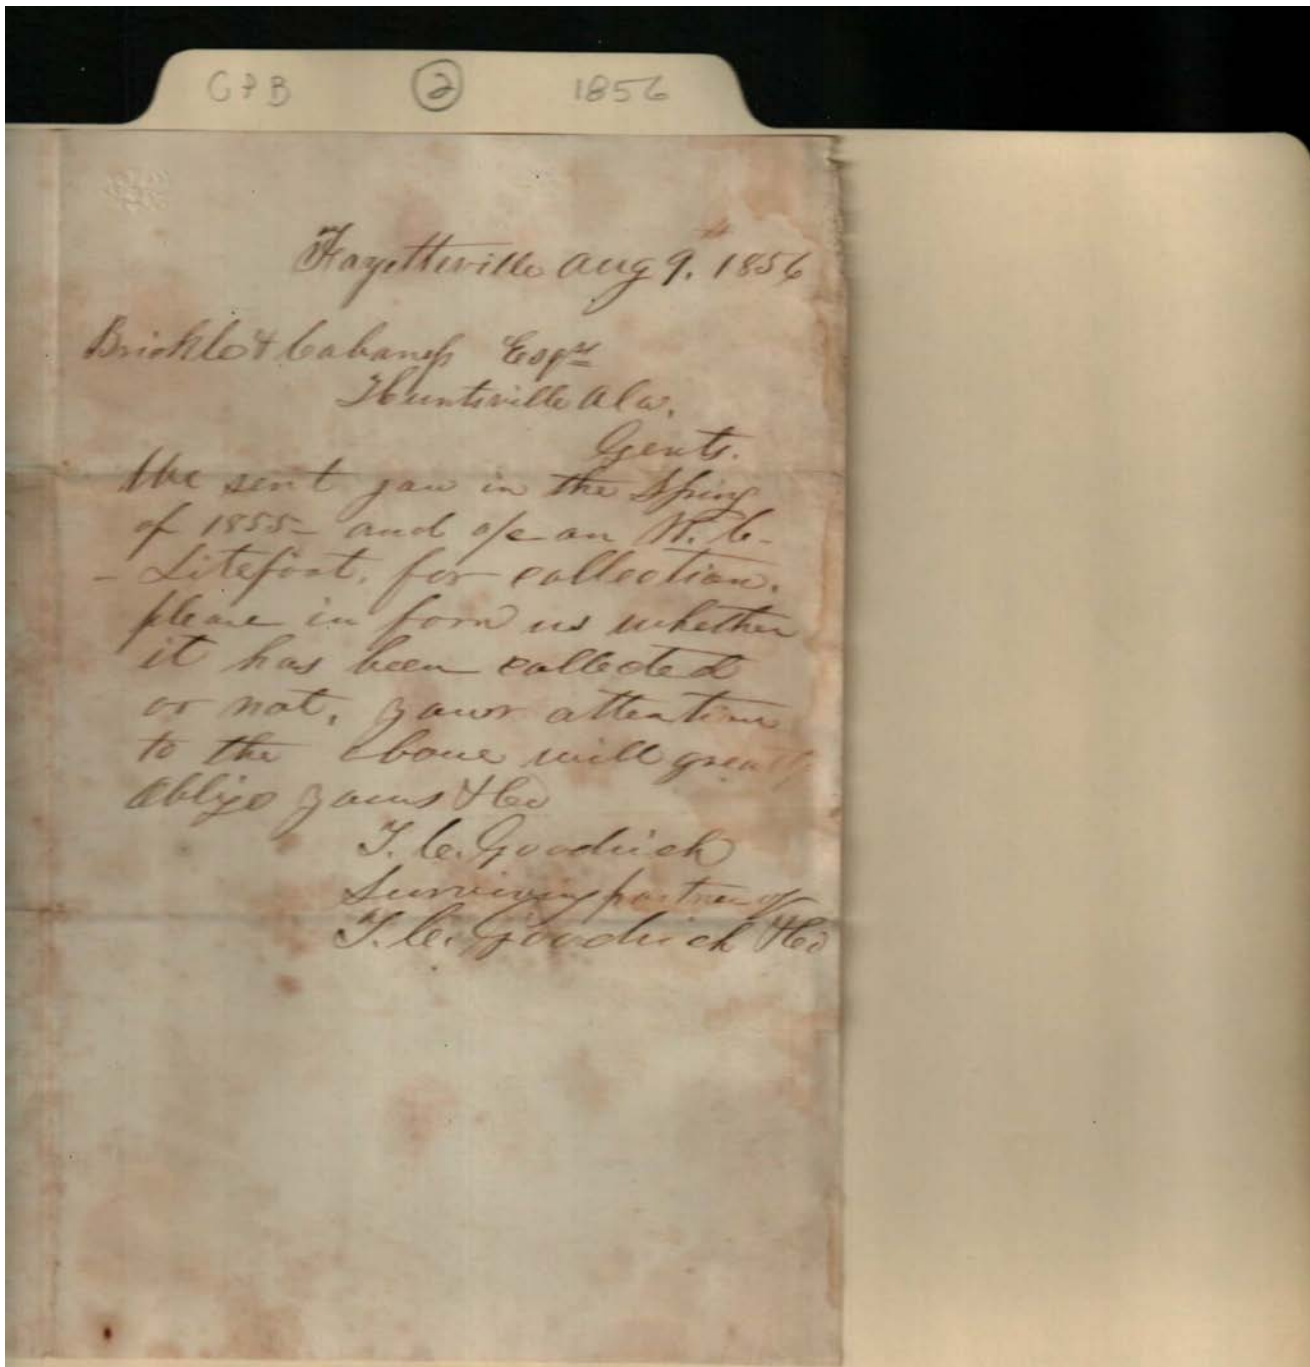 C & B ② 1856
Fayetteville Aug 9th. 1856
Brickle & Cabaness Esqrs
Huntsville Ala.
Gents.
We sent you in the Spring
of 1855 - and a/c on W. C.
- Litefoot, for collection.
please in form us whether
it has been collected
or not, your attention
to the above will greatly
oblige yours & Co
T. C. Goodrich
Surviving partner of
T. C. Goodrich & Co